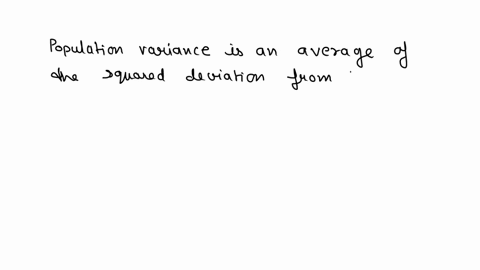 Population variance is an average of
the squared deviation from